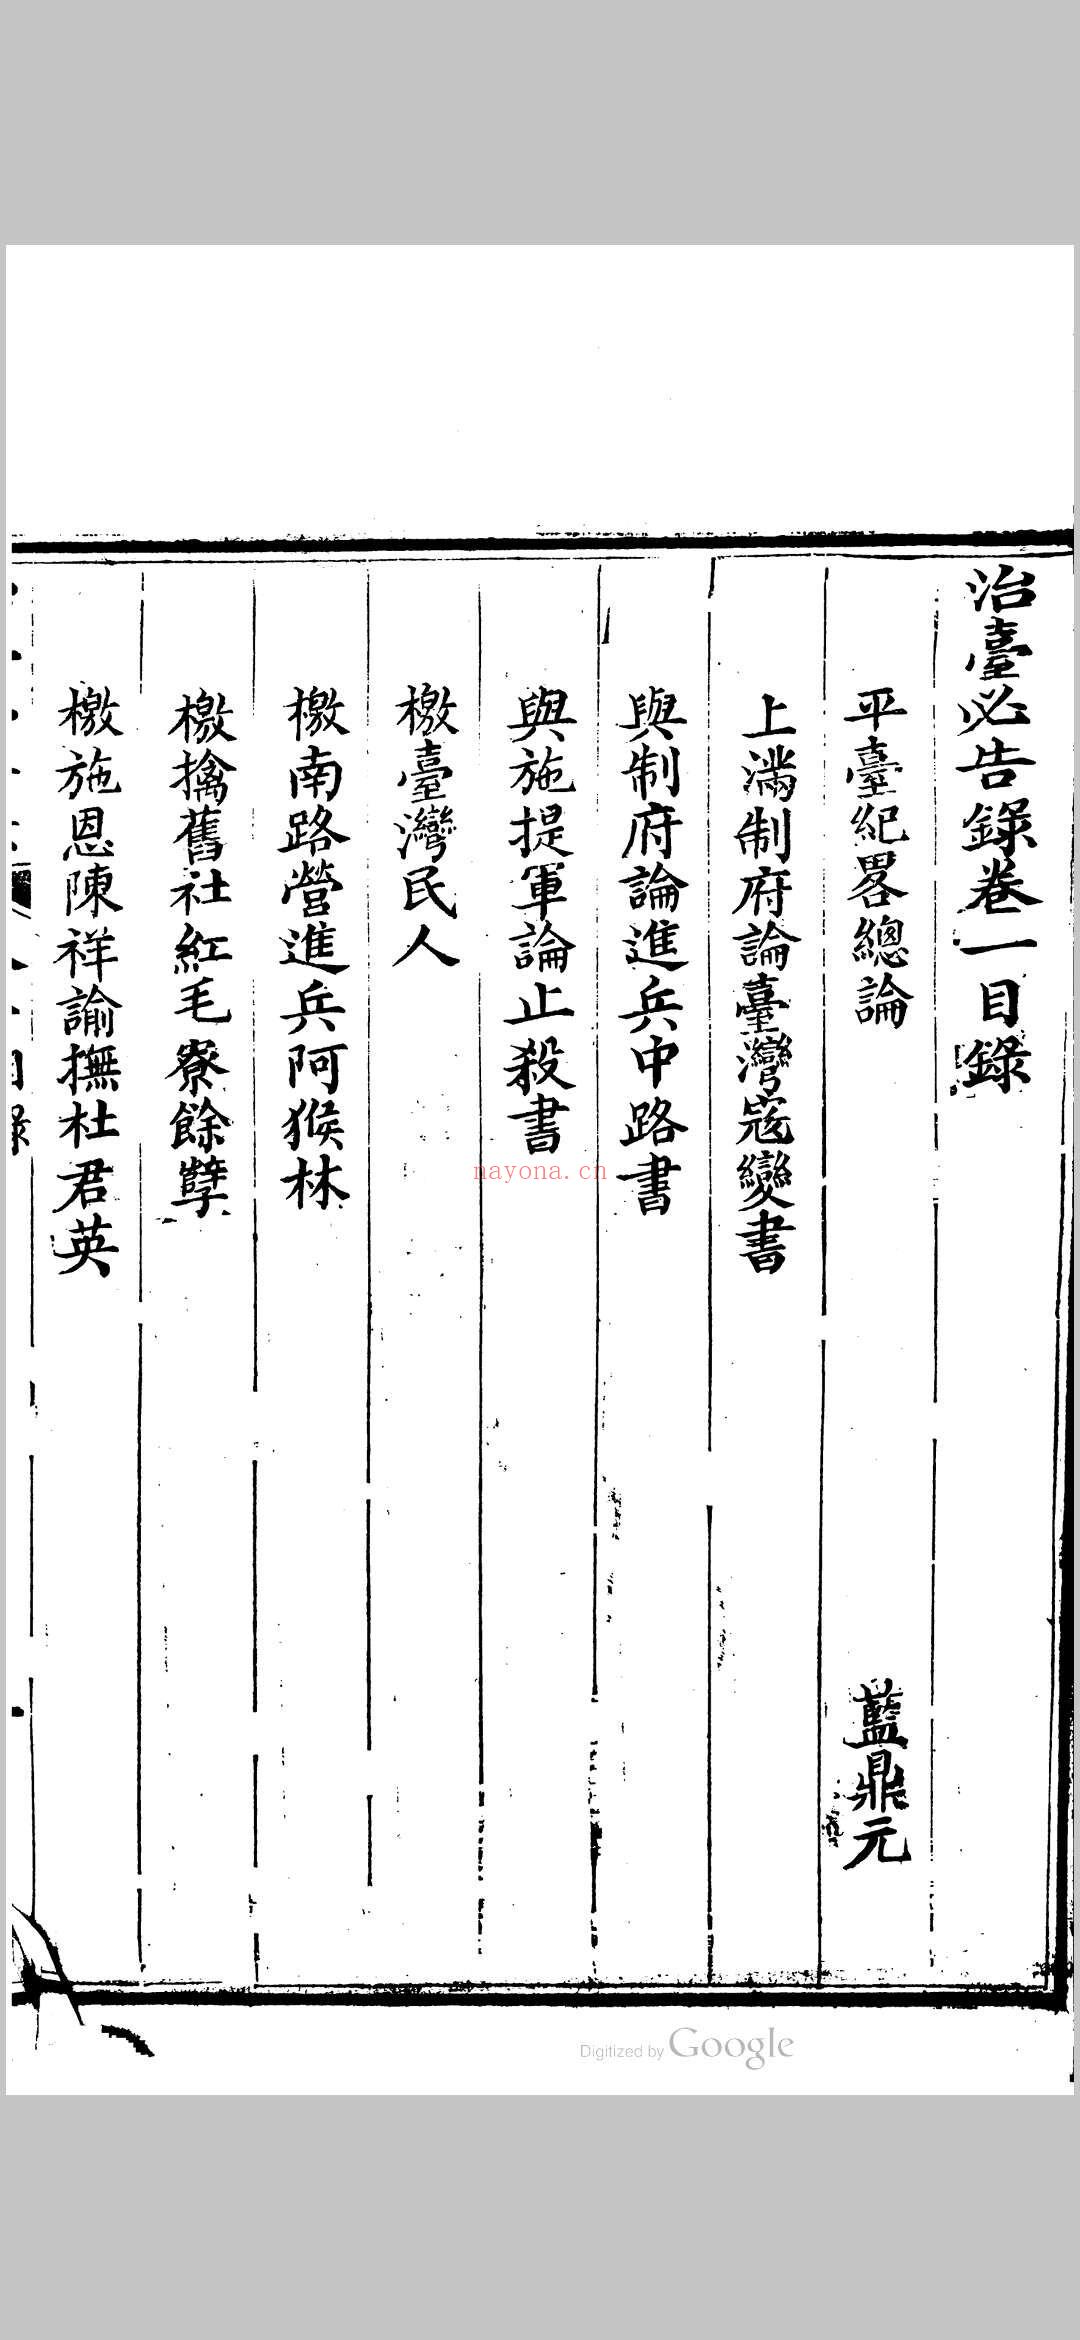 治臺必告錄卷一目錄
平臺紀畧總論 藍鼎元
上滿制府論臺灣寇變書
與制府論進兵中路書
與施提軍論止殺書
檄臺灣民人
檄南路營進兵阿猴林
檄擒舊社紅毛寮餘孽
檄施恩陳祥諭撫杜君英
nayona.cn
Digitized by Google